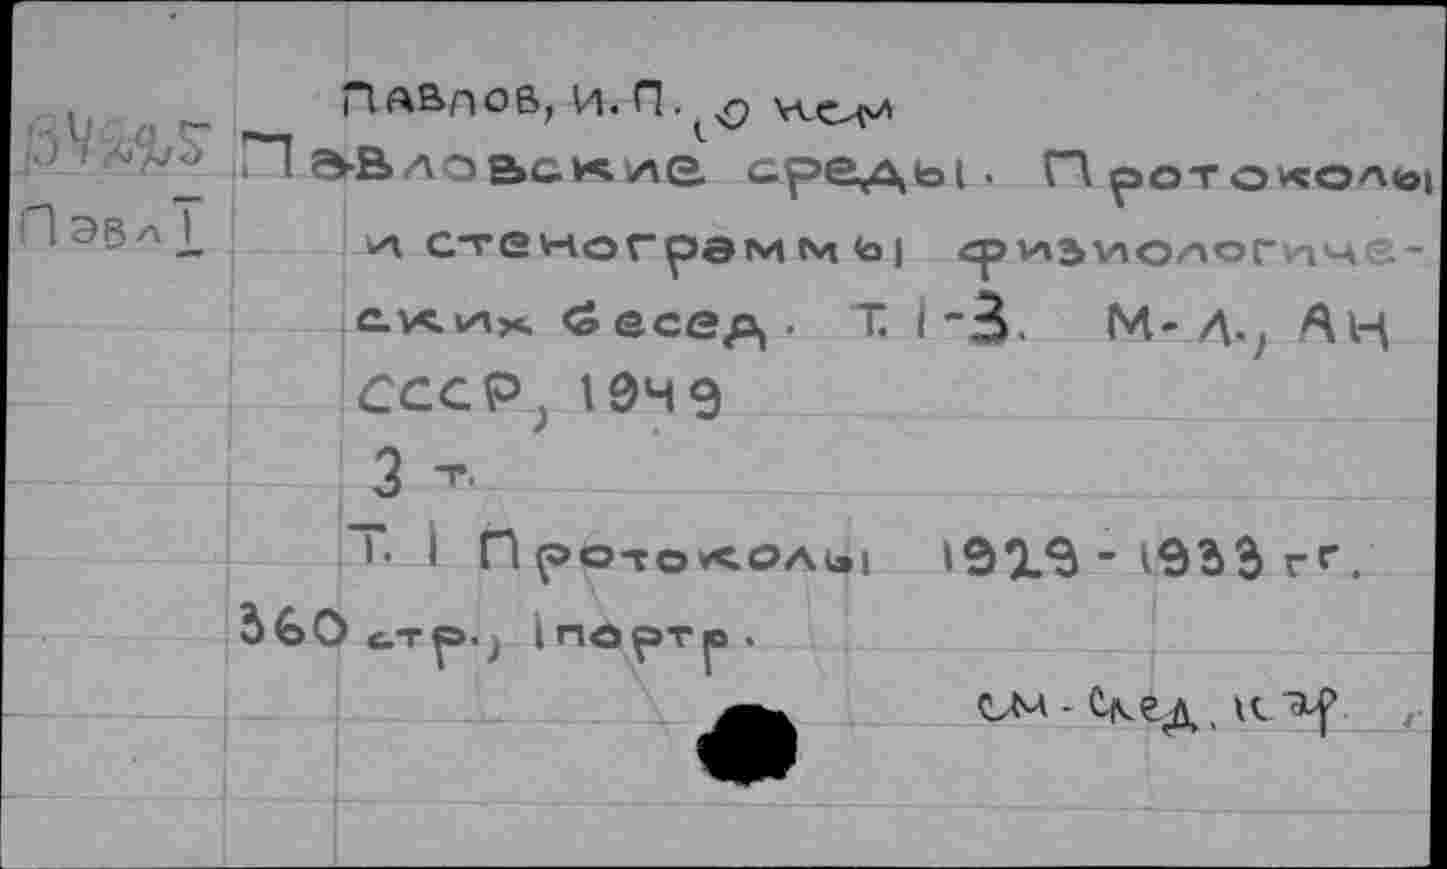 Павлов, И.П. о нем
Павловские среды. Протоколы
ПавлI
и стенограммы физиологиче-
ских бесед. Т. 1-3. М-Л., АН
СССР, 1949
3 т.
Т. 1 Протоколы 1929-1933 гг.
360 стр., 1 портр.
см - След. к-ар